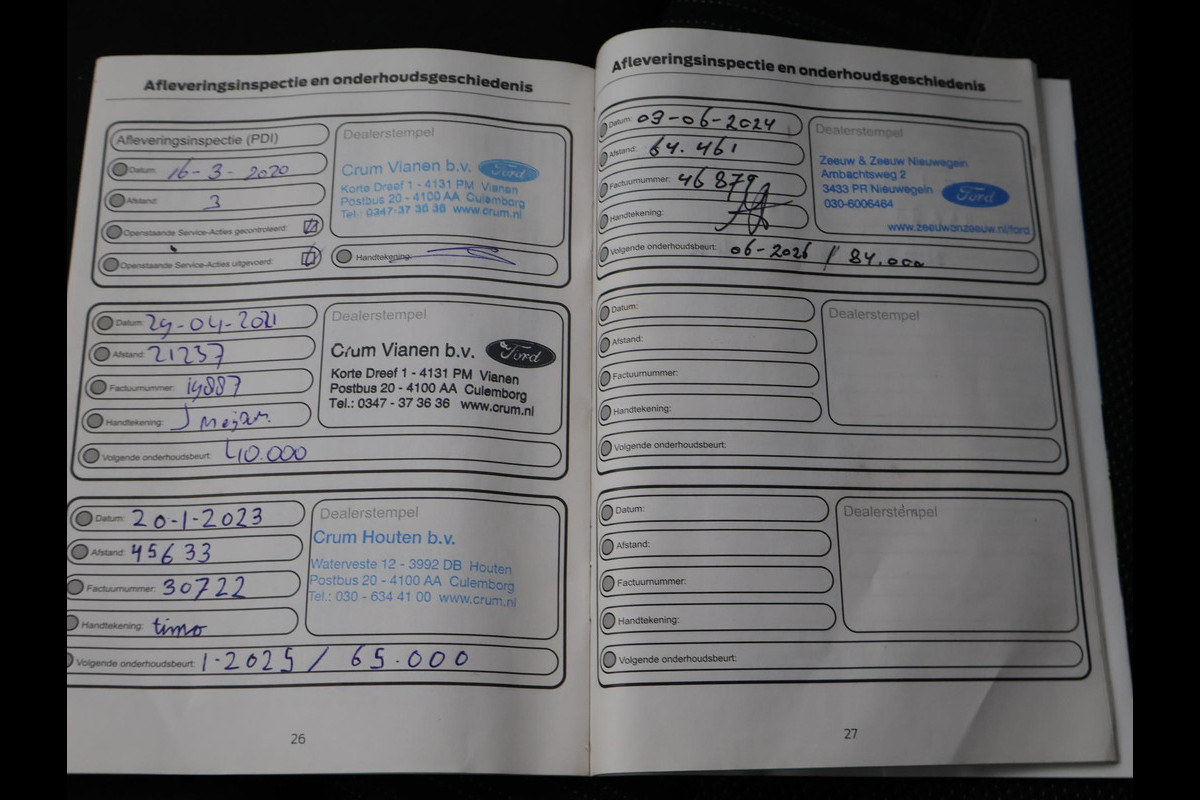 Afleveringsinspectie en onderhoudsgeschiedenis
Afleveringsinspectie (PDI)
Datum: 16-3-2020
Afstand: 3
Openstaande Service-Acties gecontroleerd:
Openstaande Service-Acties uitgevoerd:
Dealerstempel
Crum Vianen b.v. Ford
Korte Dreef 1 - 4131 PM Vianen
Postbus 20 - 4100 AA Culemborg
Tel.: 0347-37 36 36 www.crum.nl
Handtekening:
Datum: 29-04-2021
Afstand: 21237
Factuurnummer: 19887
Handtekening:
Volgende onderhoudsbeurt: 40.000
Dealerstempel
Crum Vianen b.v. Ford
Korte Dreef 1 - 4131 PM Vianen
Postbus 20 - 4100 AA Culemborg
Tel.: 0347 - 37 36 36 www.crum.nl
Datum: 20-1-2023
Afstand: 45633
Factuurnummer: 30722
Handtekening: timo
Volgende onderhoudsbeurt: 1-2025 / 65.000
Dealerstempel
Crum Houten b.v.
Waterveste 12 - 3992 DB Houten
Postbus 20 - 4100 AA Culemborg
Tel.: 030 - 634 41 00 www.crum.nl
26
Afleveringsinspectie en onderhoudsgeschiedenis
Datum: 03-06-2024
Afstand: 64.461
Factuurnummer: 46879
Handtekening:
Volgende onderhoudsbeurt: 06-2026 / 84.000
Dealerstempel
Zeeuw & Zeeuw Nieuwegein
Ambachtsweg 2
3433 PR Nieuwegein Ford
030-6006464
www.zeeuwenzeeuw.nl/ford
Datum:
Afstand:
Factuurnummer:
Handtekening:
Volgende onderhoudsbeurt:
Dealerstempel
Datum:
Afstand:
Factuurnummer:
Handtekening:
Volgende onderhoudsbeurt:
Dealerstempel
27